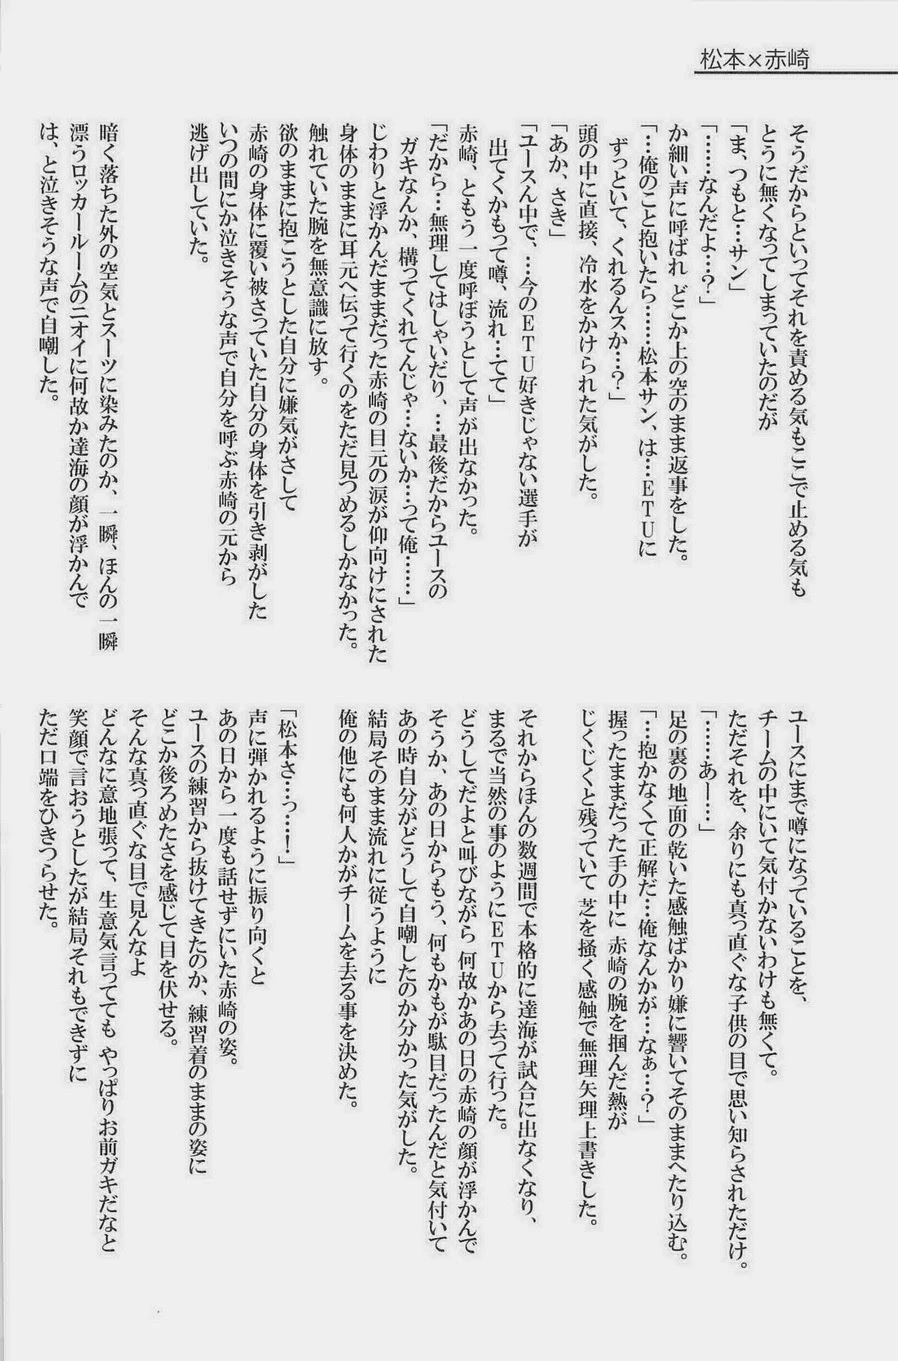 松本×赤崎
そうだからといってそれを責める気もここで止める気も
とうに無くなってしまっていたのだが
「ま、つもと…サン」
「……なんだよ…?」
か細い声に呼ばれ どこか上の空のまま返事をした。
「…俺のこと抱いたら……松本サン、は…ETUに
ずっといて、くれるんスか…?」
頭の中に直接、冷水をかけられた気がした。
「あか、さき」
「ユースん中で、…今のETU好きじゃない選手が
出てくかもって噂、流れ…てて」
赤崎、ともう一度呼ぼうとして声が出なかった。
「だから…無理してはしゃいだり、…最後だからユースの
ガキなんか、構ってくれてんじゃ…ないか…って俺……」
じわりと浮かんだままだった赤崎の目元の涙が仰向けにされた
身体のままに耳元へ伝って行くのをただ見つめるしかなかった。
触れていた腕を無意識に放す。
欲のままに抱こうとした自分に嫌気がさして
赤崎の身体に覆い被さっていた自分の身体を引き剥がした
いつの間にか泣きそうな声で自分を呼ぶ赤崎の元から
逃げ出していた。
暗く落ちた外の空気とスーツに染みたのか、一瞬、ほんの一瞬
漂うロッカールームのニオイに何故か達海の顔が浮かんで
は、と泣きそうな声で自嘲した。
ユースにまで噂になっていることを、
チームの中にいて気付かないわけも無くて。
ただそれを、余りにも真っ直ぐな子供の目で思い知らされただけ。
「……あー…」
足の裏の地面の乾いた感触ばかり嫌に響いてそのままへたり込む。
「…抱かなくて正解だ…俺なんかが…なぁ…?」
握ったままだった手の中に 赤崎の腕を掴んだ熱が
じくじくと残っていて 芝を掻く感触で無理矢理上書きした。
それからほんの数週間で本格的に達海が試合に出なくなり、
まるで当然の事のようにETUから去って行った。
どうしてだよと叫びながら 何故かあの日の赤崎の顔が浮かんで
そうか、あの日からもう、何もかもが駄目だったんだと気付いて
あの時自分がどうして自嘲したのか分かった気がした。
結局そのまま流れに従うように
俺の他にも何人かがチームを去る事を決めた。
「松本さ…っ…!」
声に弾かれるように振り向くと
あの日から一度も話せずにいた赤崎の姿。
ユースの練習から抜けてきたのか、練習着のままの姿に
どこか後ろめたさを感じて目を伏せる。
そんな真っ直ぐな目で見んなよ
どんなに意地張って、生意気言ってても やっぱりお前ガキだなと
笑顔で言おうとしたが結局それもできずに
ただ口端をひきつらせた。